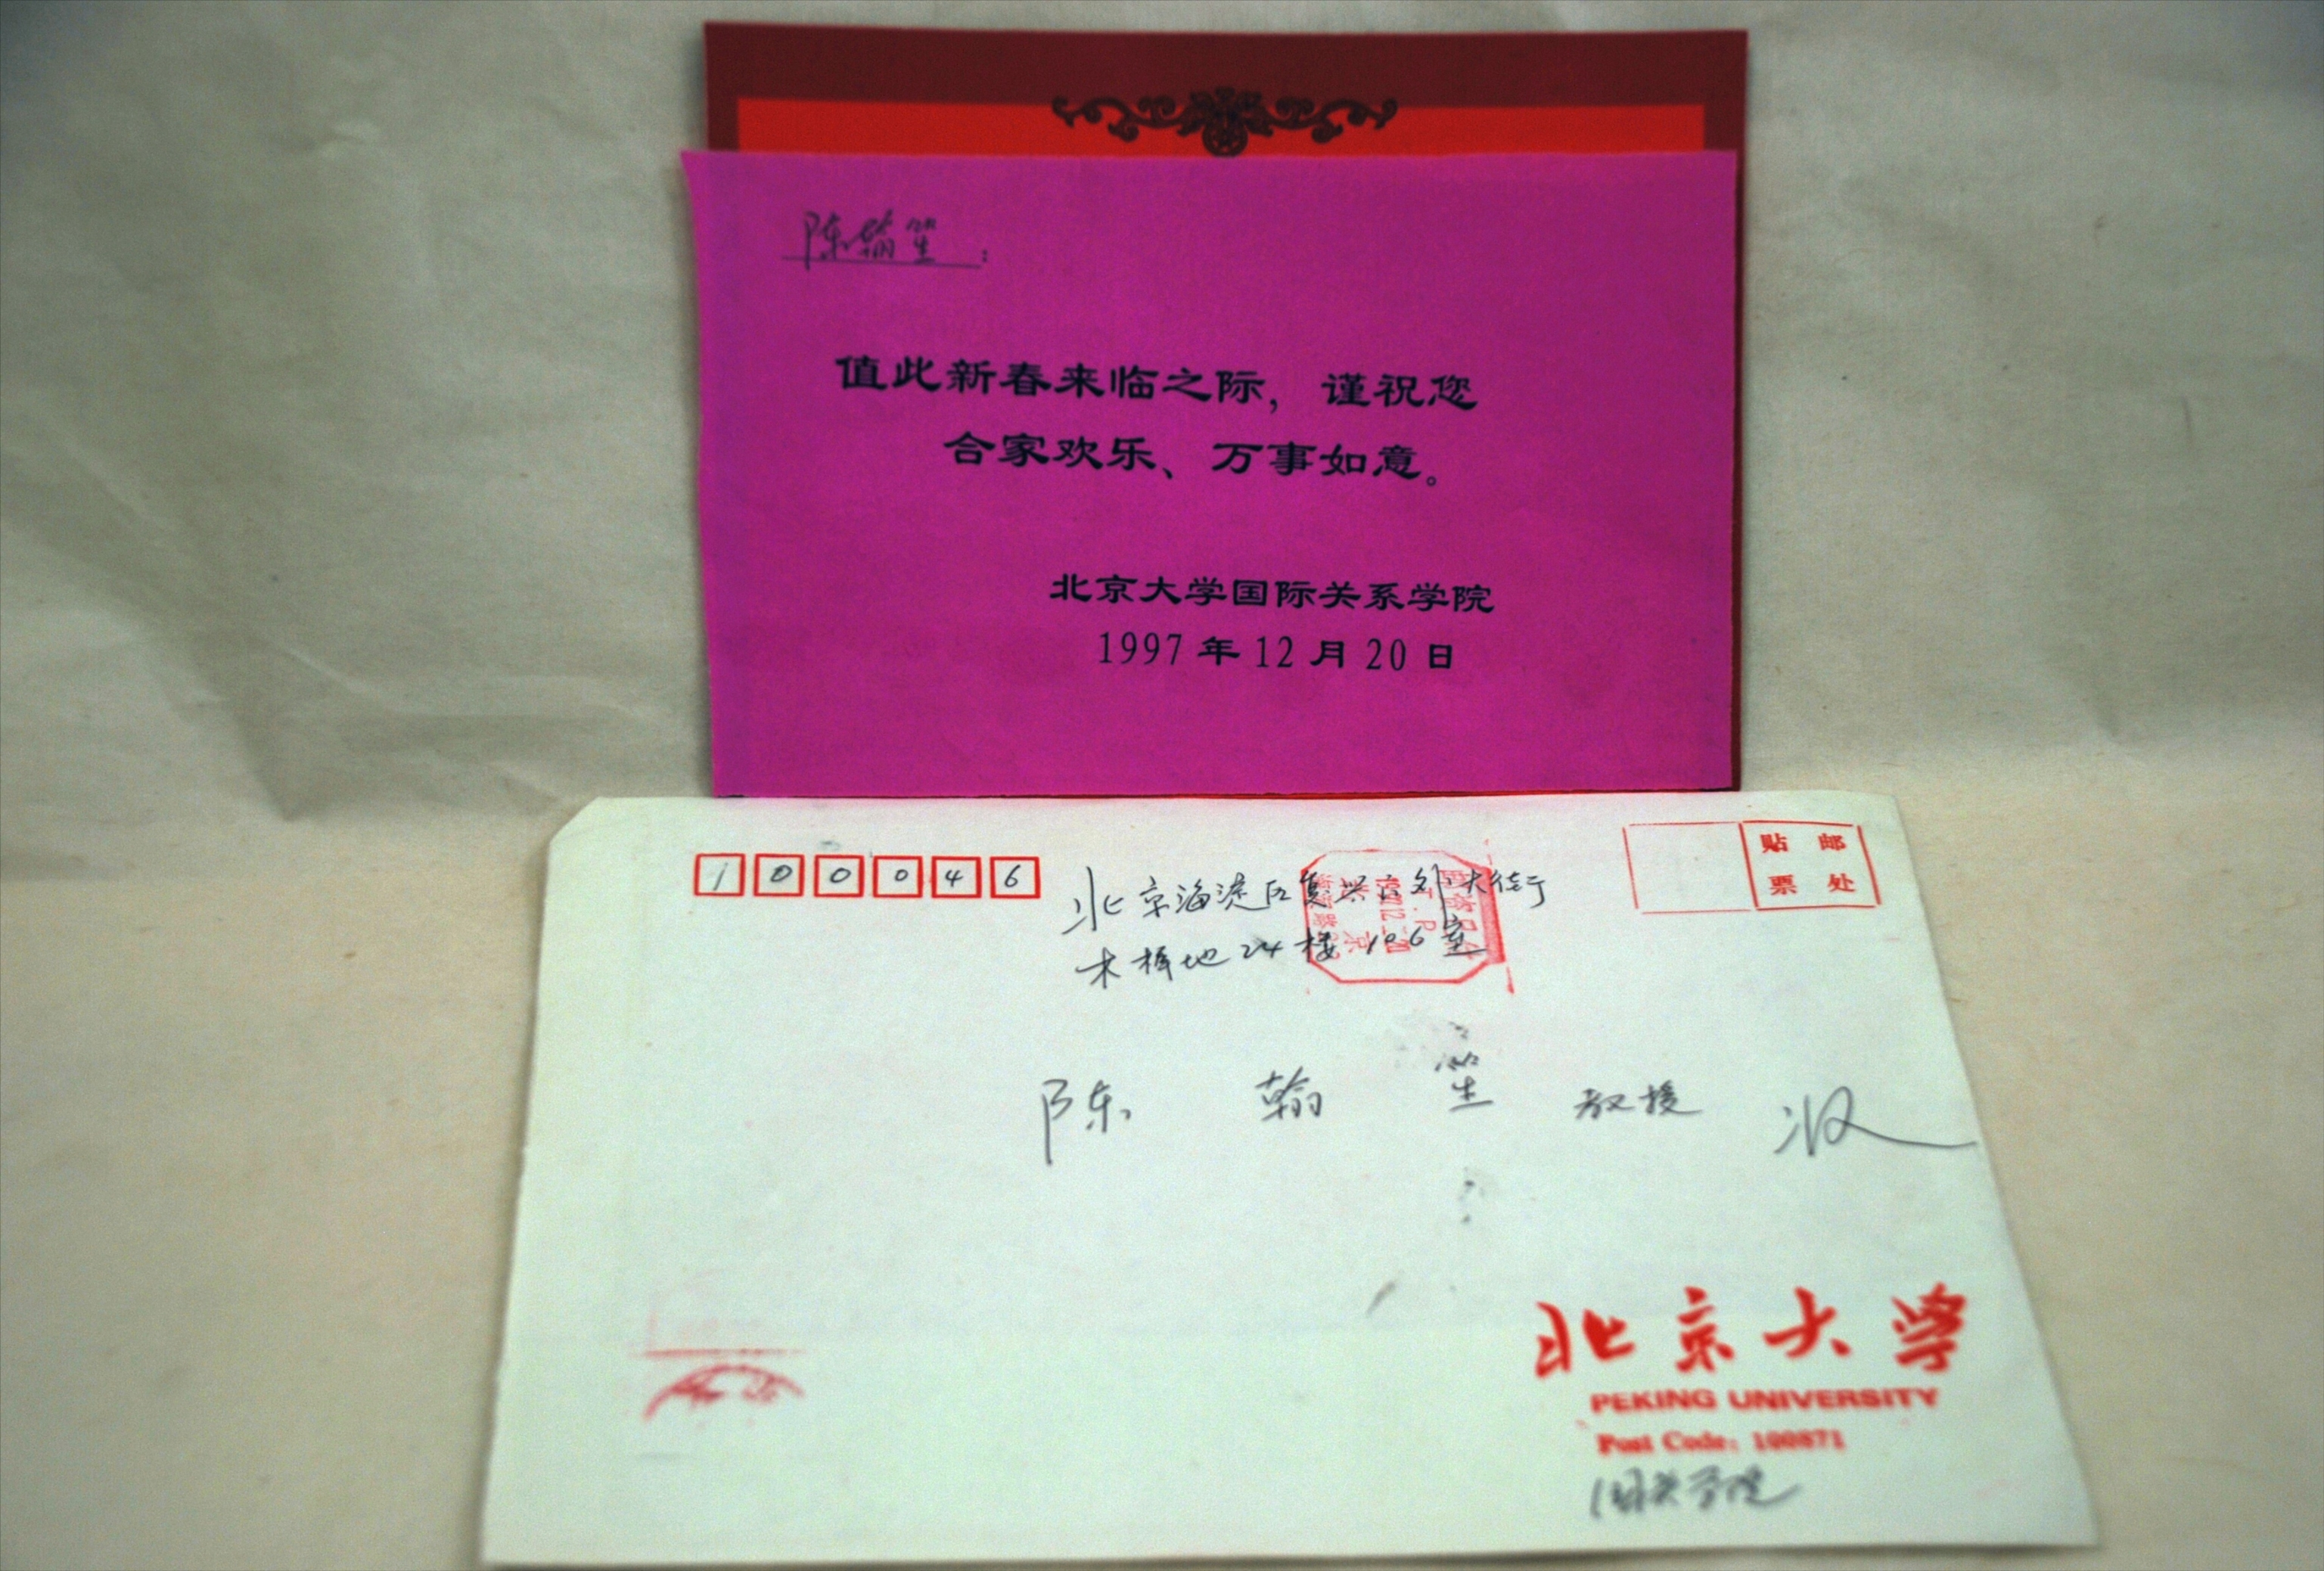 陈翰笙：
值此新春来临之际，谨祝您
合家欢乐、万事如意。
北京大学国际关系学院
1997年12月20日
100046
北京海淀区复兴门外大街
木樨地24楼106室
贴邮
票处
陈翰笙教授收
北京大学
PEKING UNIVERSITY
Post Code: 100871
国关学院